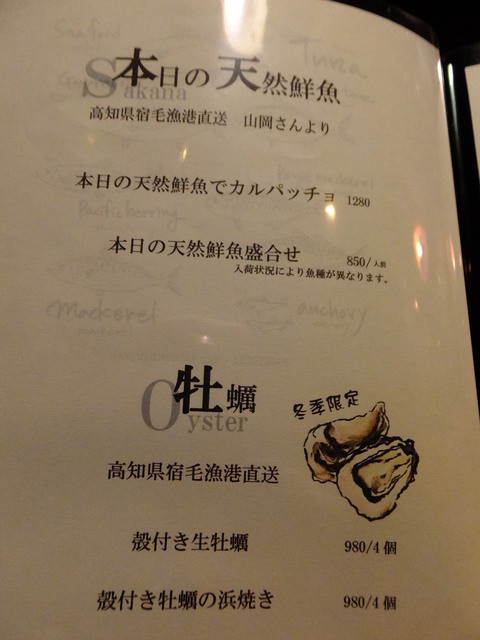 Seafood
Tuna
Sakana
本日の天然鮮魚
高知県宿毛漁港直送 山岡さんより
本日の天然鮮魚でカルパッチョ 1280
Pacific herring
本日の天然鮮魚盛合せ 850/人前
入荷状況により魚種が異なります。
Mackerel
anchovy
Oyster
牡蠣
冬季限定
高知県宿毛漁港直送
殻付き生牡蠣 980/4個
殻付き牡蠣の浜焼き 980/4個